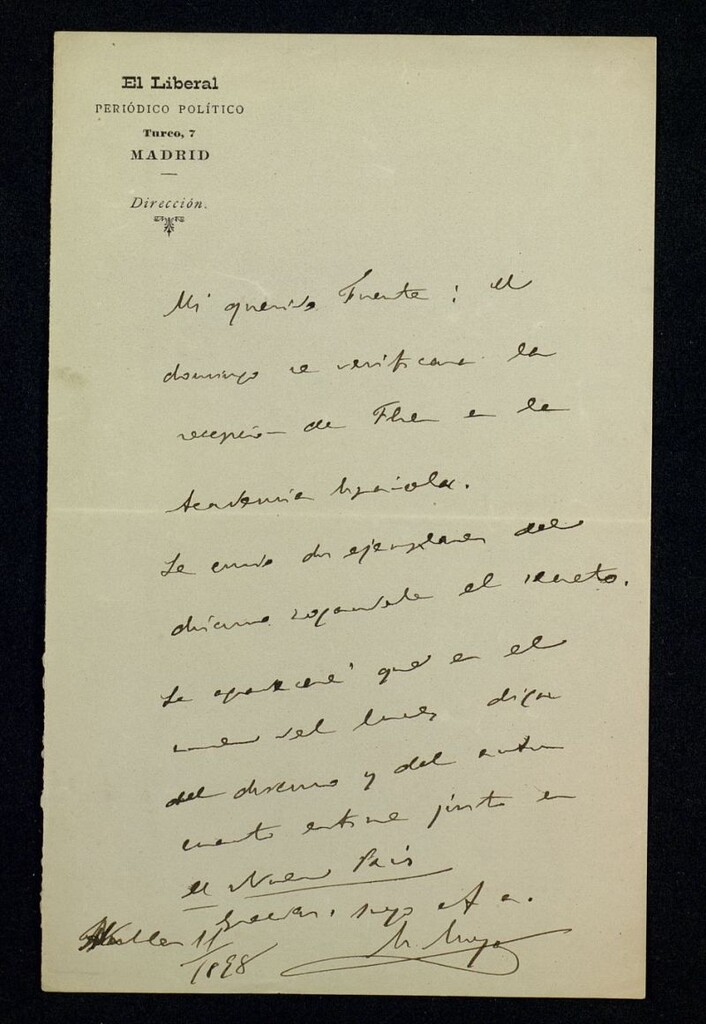 El Liberal
PERIÓDICO POLÍTICO
Turco, 7
MADRID
Dirección.
Mi querido Fuente: el
domingo se verificara la
recepción de en la
Academia Española.
Le envio dos ejemplares del
discurso rogandole el secreto.
Le agradeceré que en el
del lunes diga
del discurso y del autor
cuanto estime justo en
el Nuevo País
Gracias, suyo af a.
M. Moya
11/1898